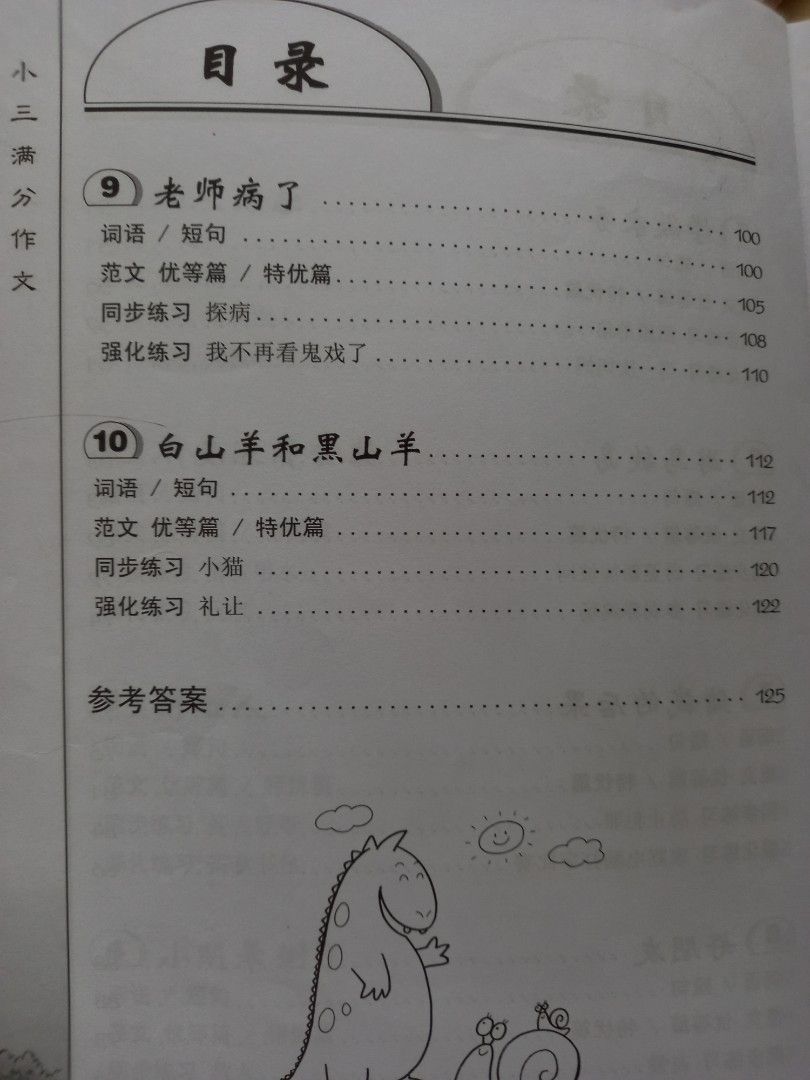 小三满分作文
目录
9 老师病了 100
词语 / 短句 100
范文 优等篇 / 特优篇 105
同步练习 探病 108
强化练习 我不再看鬼戏了 110
10 白山羊和黑山羊 112
词语 / 短句 112
范文 优等篇 / 特优篇 117
同步练习 小猫 120
强化练习 礼让 122
参考答案 125